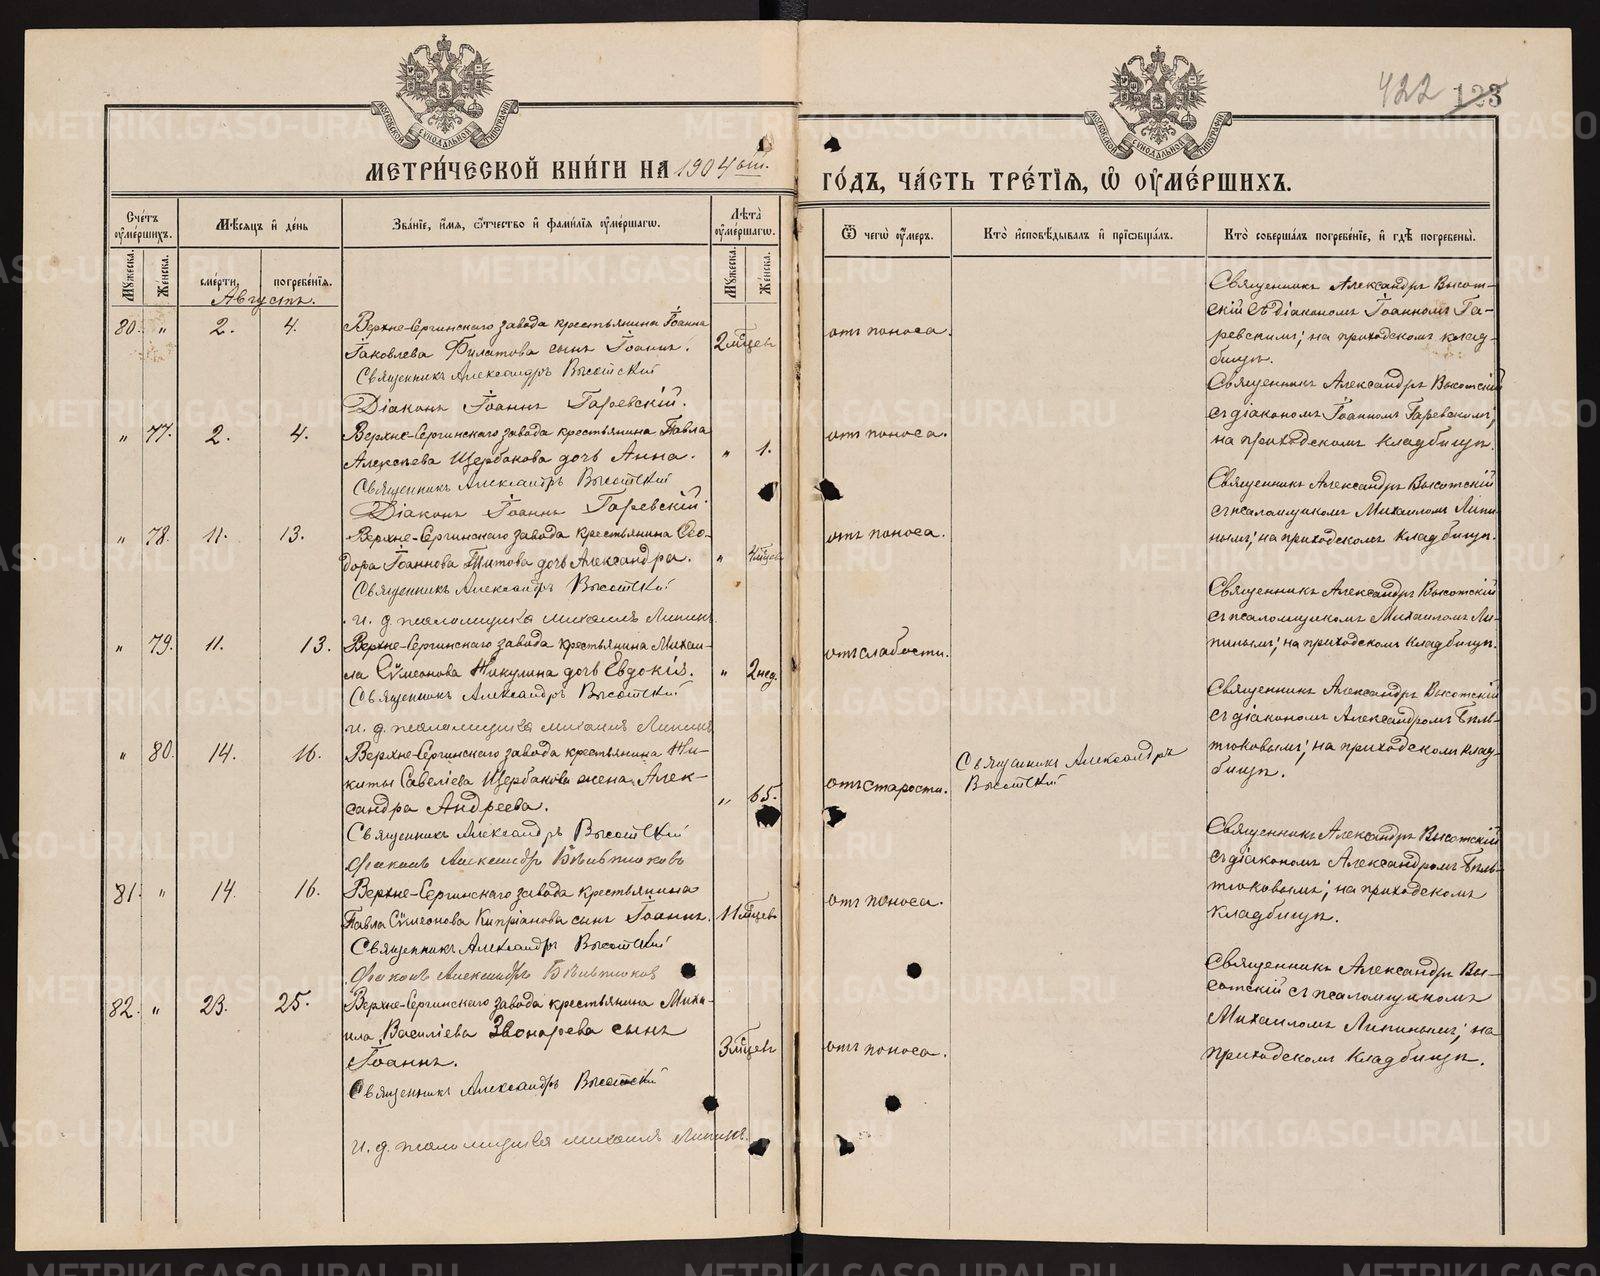 422 123
МОСКОВСКОЙ СѴНОДАЛЬНОЙ ТИПОГРАФІИ
МОСКОВСКОЙ СѴНОДАЛЬНОЙ ТИПОГРАФІИ
МЕТРИ́ЧЕСКОЙ КНИ́ГИ НА 1904 ый.
ГО́ДЪ, ЧА́СТЬ ТРЕ́ТІЯ, Ѽ ОУ҆МЕ́РШИХЪ.
Сче́тъ оу҆ме́ршихъ.
Мꙋ́жеска. Же́нска.
Мѣ́сяцъ и҆ де́нь
сме́рти, погребе́нїя.
Зва́нїе, и҆́мя, ѻ҆́тчество и҆ фами́лїя оу҆ме́ршагѡ.
Лѣ́та оу҆ме́ршагѡ.
Мꙋ́жеска. Же́нска.
Ѿ чегѡ̀ оу҆́меръ.
Кто̀ и҆сповѣ́дывалъ и҆ прїѡбща́лъ.
Кто̀ соверша́лъ погребе́нїе, и҆ гдѣ̀ погребены̀.
Августъ.
80. " 2. 4.
Верхне-Сергинскаго завода крестьянина Іоанна
Іаковлева Филатова сынъ Іоаннъ.
Священникъ Александръ Высотскій
Діаконъ Іоаннъ Гаревскій.
2 мѣсец
отъ поноса.
Священникъ Александръ Высот-
скій съ діакономъ Іоанномъ Га-
ревскимъ; на приходскомъ клад-
бищѣ.
" 77. 2. 4.
Верхне-Сергинскаго завода крестьянина Павла
Алексѣева Щербакова дочь Анна.
Священникъ Александръ Высотскій
Діаконъ Іоаннъ Гаревскій.
" 1.
отъ поноса.
Священникъ Александръ Высотскій
съ діакономъ Іоанномъ Гаревскимъ;
на приходскомъ кладбищѣ.
" 78. 11. 13.
Верхне-Сергинскаго завода крестьянина Ѳео-
дора Іоаннова Титова дочь Александра.
Священникъ Александръ Высотскій
и. д. псаломщика Михаилъ Липинъ
" 4 мѣсец
отъ поноса.
Священникъ Александръ Высотскій
съ псаломщикомъ Михаиломъ Липи-
нымъ; на приходскомъ кладбищѣ.
" 79. 11. 13.
Верхне-Сергинскаго завода крестьянина Михаи-
ла Сѵмеонова Никулина дочь Евдокія.
Священникъ Александръ Высотскій
и. д. псаломщика Михаилъ Липинъ
" 2 нед.
отъ слабости.
Священникъ Александръ Высотскій
съ псаломщикомъ Михаиломъ Ли-
пинымъ; на приходскомъ кладбищѣ.
" 80. 14. 16.
Верхне-Сергинскаго завода крестьянина Ни-
киты Савеліева Щербакова жена Алек-
сандра Андреева.
Священникъ Александръ Высотскій
Діаконъ Александръ Бѣльтюковъ
" 65.
отъ старости.
Священникъ Александръ
Высотскій
Священникъ Александръ Высотскій
съ діакономъ Александромъ Бѣль-
тюковымъ; на приходскомъ клад-
бищѣ.
81. " 14. 16.
Верхне-Сергинскаго завода крестьянина
Павла Сѵмеонова Кипріанова сынъ Іоаннъ.
Священникъ Александръ Высотскій
Діаконъ Александръ Бѣльтюковъ
11 мѣсец
отъ поноса.
Священникъ Александръ Высотскій
съ діакономъ Александромъ Бѣль-
тюковымъ; на приходскомъ
кладбищѣ.
82. " 23. 25.
Верхне-Сергинскаго завода крестьянина Миха-
ила Василіева Звонарева сынъ
Іоаннъ.
Священникъ Александръ Высотскій
и. д. псаломщика Михаилъ Липинъ.
3 мѣсец
отъ поноса.
Священникъ Александръ Вы-
сотскій съ псаломщикомъ
Михаиломъ Липинымъ; на
приходскомъ кладбищѣ.
METRIKI.GASO-URAL.RU